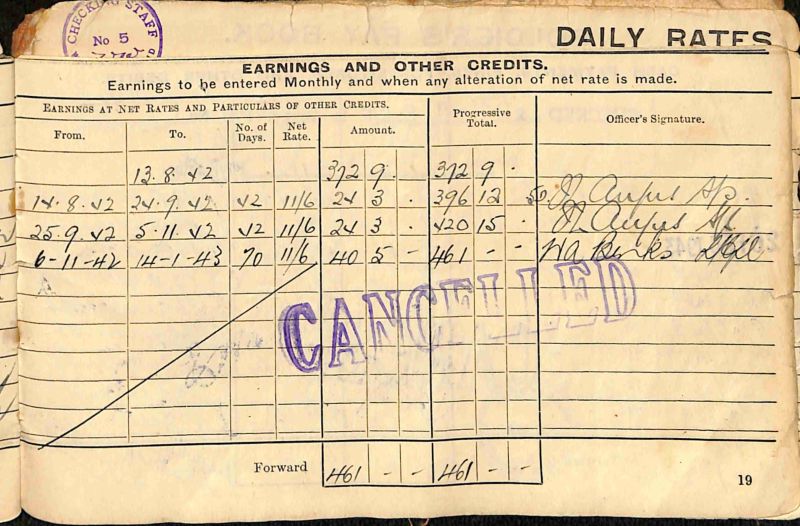 CHECKING STAFF
No 5
DAILY RATES
EARNINGS AND OTHER CREDITS.
Earnings to be entered Monthly and when any alteration of net rate is made.
EARNINGS AT NET RATES AND PARTICULARS OF OTHER CREDITS.
From. To. No. of Days. Net Rate. Amount. Progressive Total. Officer's Signature.
13.8.42 372 9 . 372 9 .
14.8.42 24.9.42 42 11/6 24 3 . 396 12
25.9.42 5.11.42 42 11/6 24 3 . 420 15 .
6-11-42 14-1-43 70 11/6 40 5 - 461 - -
CANCELLED
Forward 461 - - 461 - -
19